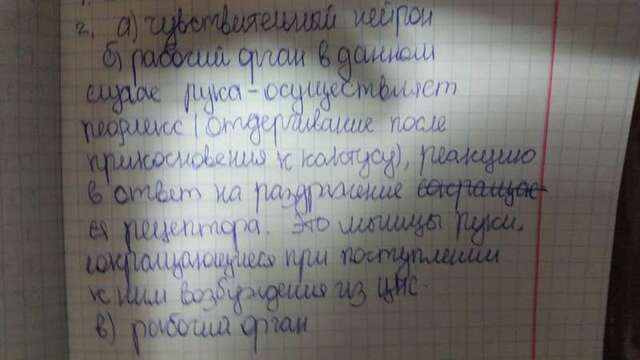 2. а) чувствительный нейрон
б) рабочий орган в данном
случае рука - осуществляет
рефлекс (отдергивание после
прикосновения к кактусу), реакцию
в ответ на раздражение сокращае
ся рецептора. Это мышцы руки,
сокращающиеся при поступлении
к ним возбуждения из ЦНС.
в) рабочий орган